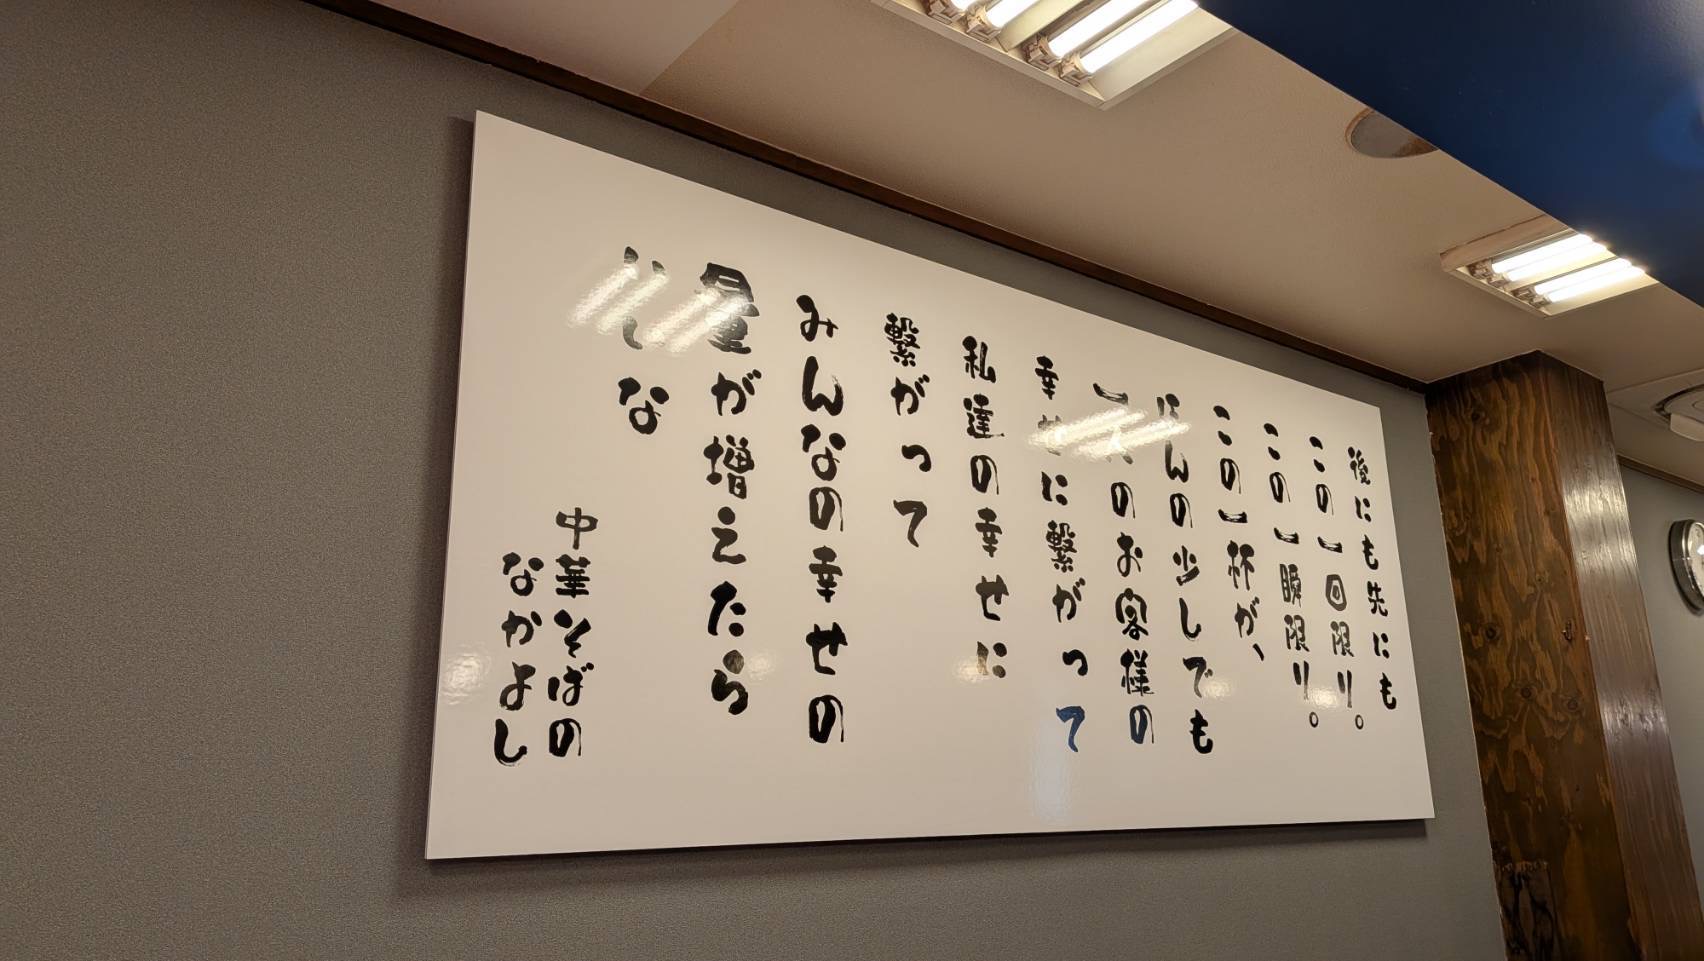 後にも先にも
この一回限り。
この一瞬限り。
この一杯が、
ほんの少しでも
一人のお客様の
幸せに繋がって
私達の幸せに
繋がって
みんなの幸せの
量が増えたら
いいな
中華そばの
なかよし